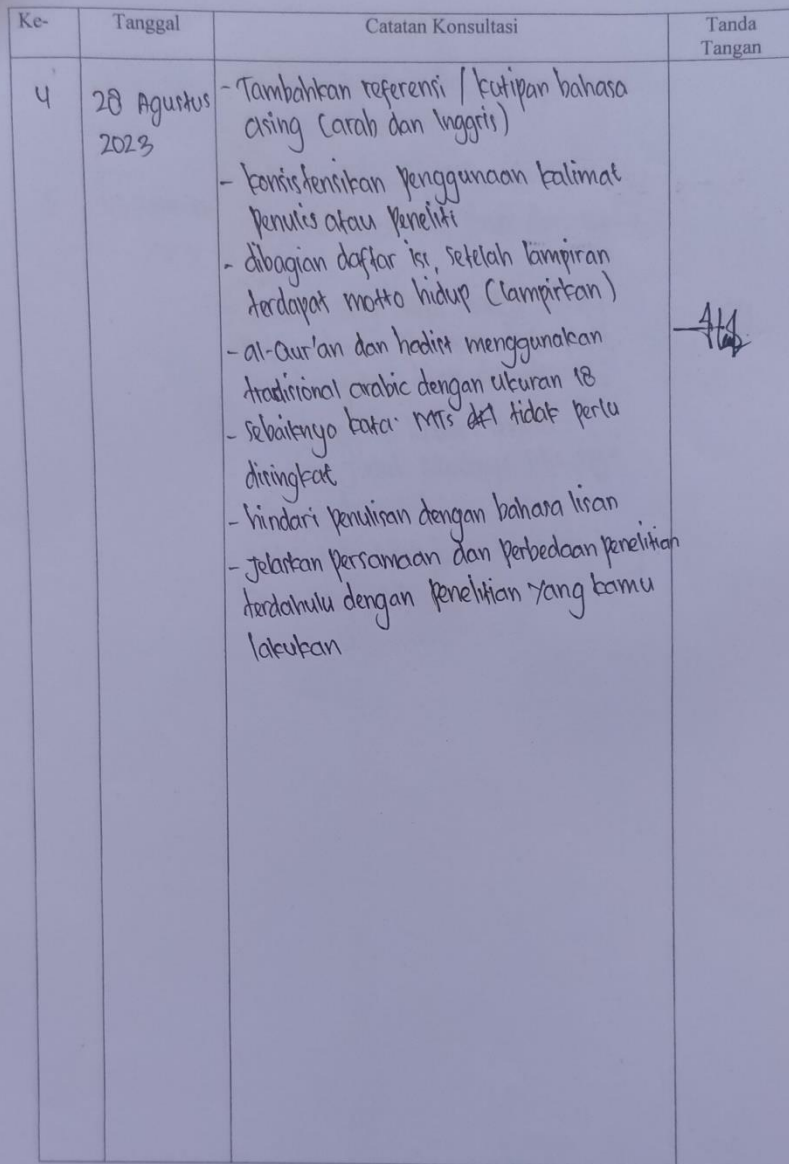 Ke- Tanggal Catatan Konsultasi Tanda
Tangan
4 28 Agustus - Tambahkan referensi / kutipan bahasa
2023 asing (arab dan Inggris)
- konsistensikan penggunaan kalimat
penulis atau peneliti
- dibagian daftar isi, setelah lampiran
terdapat motto hidup (lampirkan)
- al-Qur'an dan hadist menggunakan
tradisional arabic dengan ukuran 18
- sebaiknya kata MTs tidak perlu
disingkat
- hindari penulisan dengan bahasa lisan
- jelaskan persamaan dan perbedaan penelitian
terdahulu dengan penelitian yang kamu
lakukan